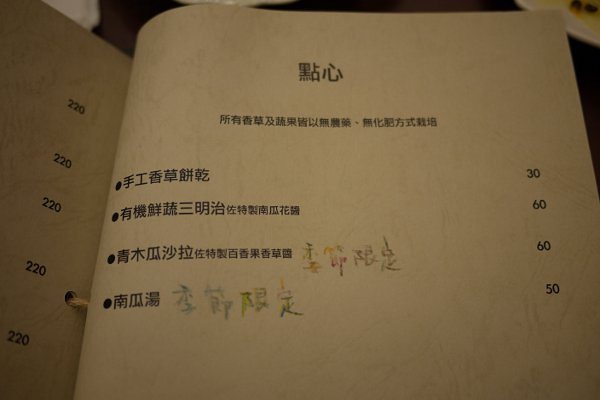 220
220
220
220
220
點心
所有香草及蔬果皆以無農藥、無化肥方式栽培
●手工香草餅乾 30
●有機鮮蔬三明治佐特製南瓜花醬 60
●青木瓜沙拉佐特製百香果香草醬 季節限定 60
●南瓜湯 季節限定 50